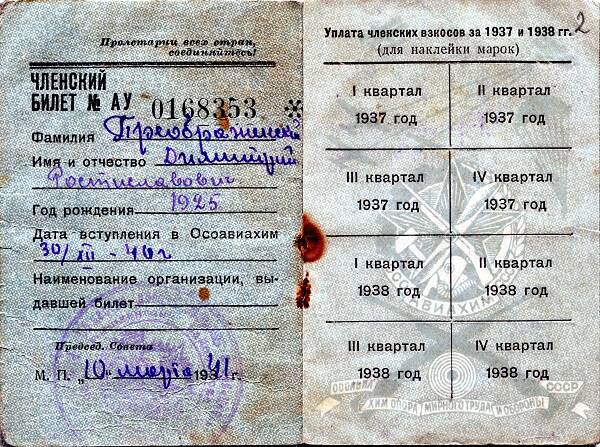 Пролетарии всех стран,
соединяйтесь!
ЧЛЕНСКИЙ
БИЛЕТ № АУ 0168353 *
Фамилия Преображенский
Имя и отчество Димитрий
Ростиславович
Год рождения 1925
Дата вступления в Осоавиахим
30/XII - 40 г
Наименование организации, вы-
давшей билет
Председ. Совета
М. П. „10" марта 1941 г.
2
Уплата членских взносов за 1937 и 1938 гг.
(для наклейки марок)
I квартал II квартал
1937 год 1937 год
III квартал IV квартал
1937 год 1937 год
I квартал II квартал
1938 год 1938 год
III квартал IV квартал
1938 год 1938 год
СССР
ОБОРОНЫ